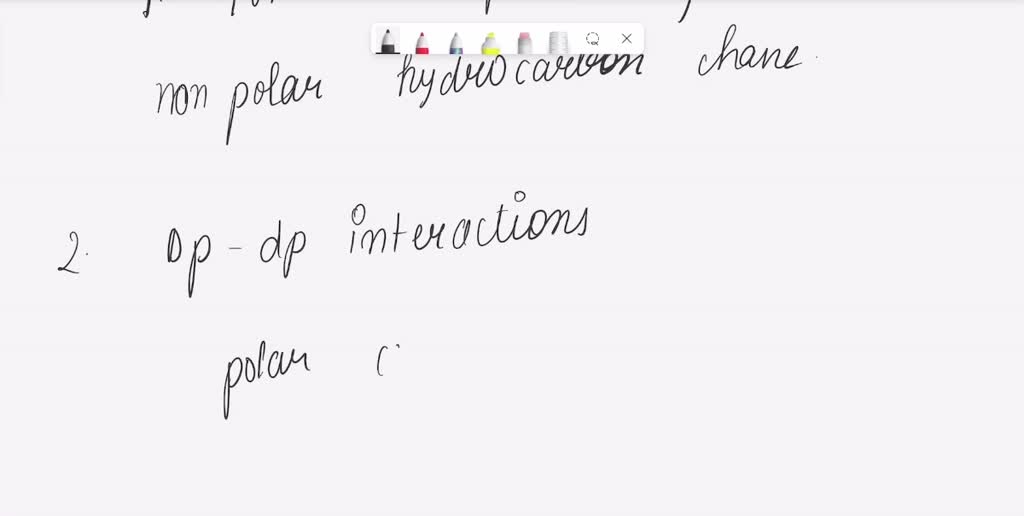 non polar hydrocarbon chane.
2. Dp - dp interactions
polar